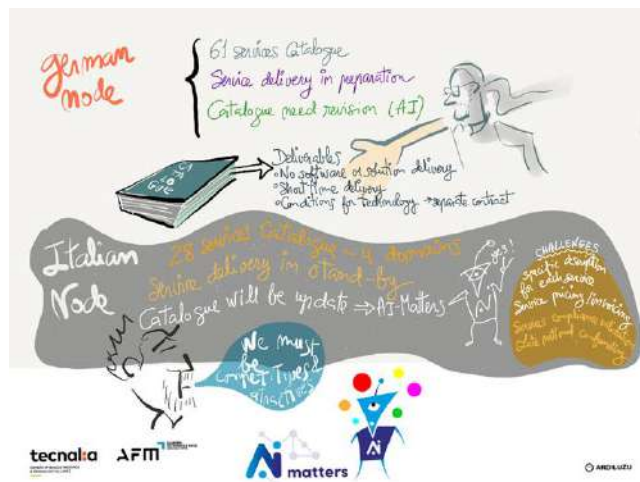 german
node
61 services Catalogue
Service delivery in preparation
Catalogue need revision (AI)
Deliverables
No software or solution delivery
Short time delivery
Conditions for technology → separate contract
Italian
Node
28 services Catalogue - 4 domains
Service delivery in stand-by
Catalogue will be update ⇒ AI-Matters
CHALLENGES
Specific description
for each service
Service pricing/invoicing
Services compliance
State aid and
We must
be
tecnalia
AFM
Ai matters
Ai
ARDILUZU